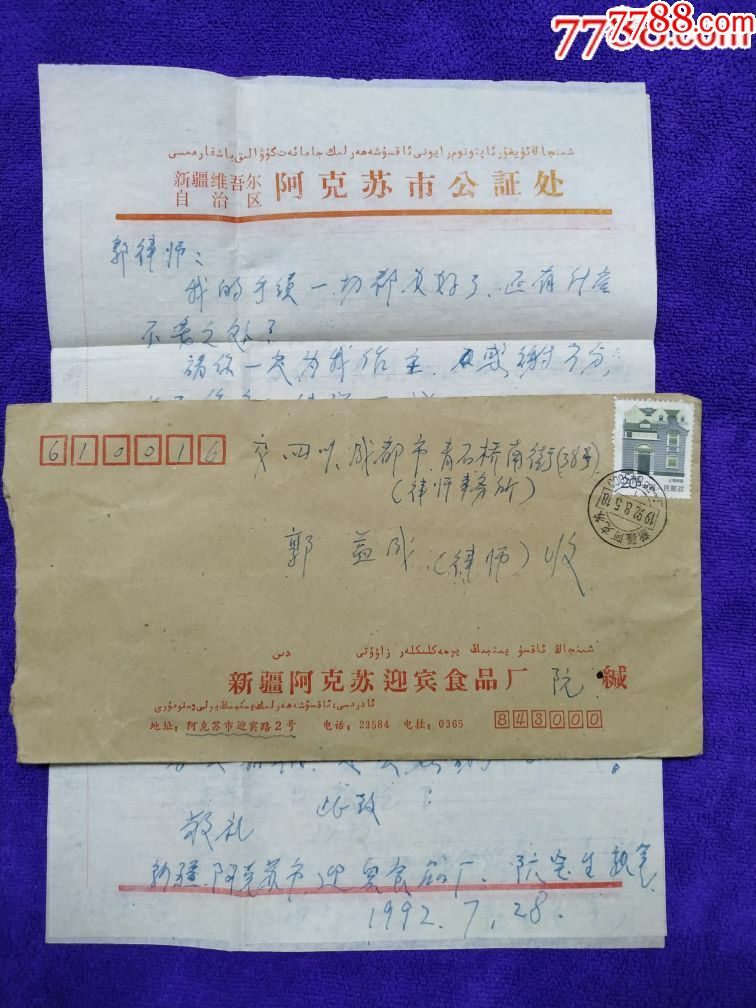 7788.com
7788.com
شىنجاڭ ئۇيغۇر ئاپتونوم رايونى ئاقسۇ شەھەرلىك جامائەت گۇۋالىق باشقارمىسى
新疆维吾尔
自治区
阿克苏市公証处
郭律师:
我的手续一切都办好了、还有什庅
不妥之处?
請你一定为我作主、感谢万分、
610016
交四川、成都市、青石桥南街(38号)
(律师事务所)
20
上海民居
新疆阿克苏
1992.8.5.18
郭益成(律师)收
شىنجاڭ ئاقسۇ يىڭبىڭ يېمەكلىكلەر زاۋۇتى دىن
新疆阿克苏迎宾食品厂 阮 缄
地址:阿克苏市迎宾路2号 电话:23584 电挂:0365
843000
此致!
敬礼
新疆、阿克苏市、迎宾食品厂、阮
1992.7.28.